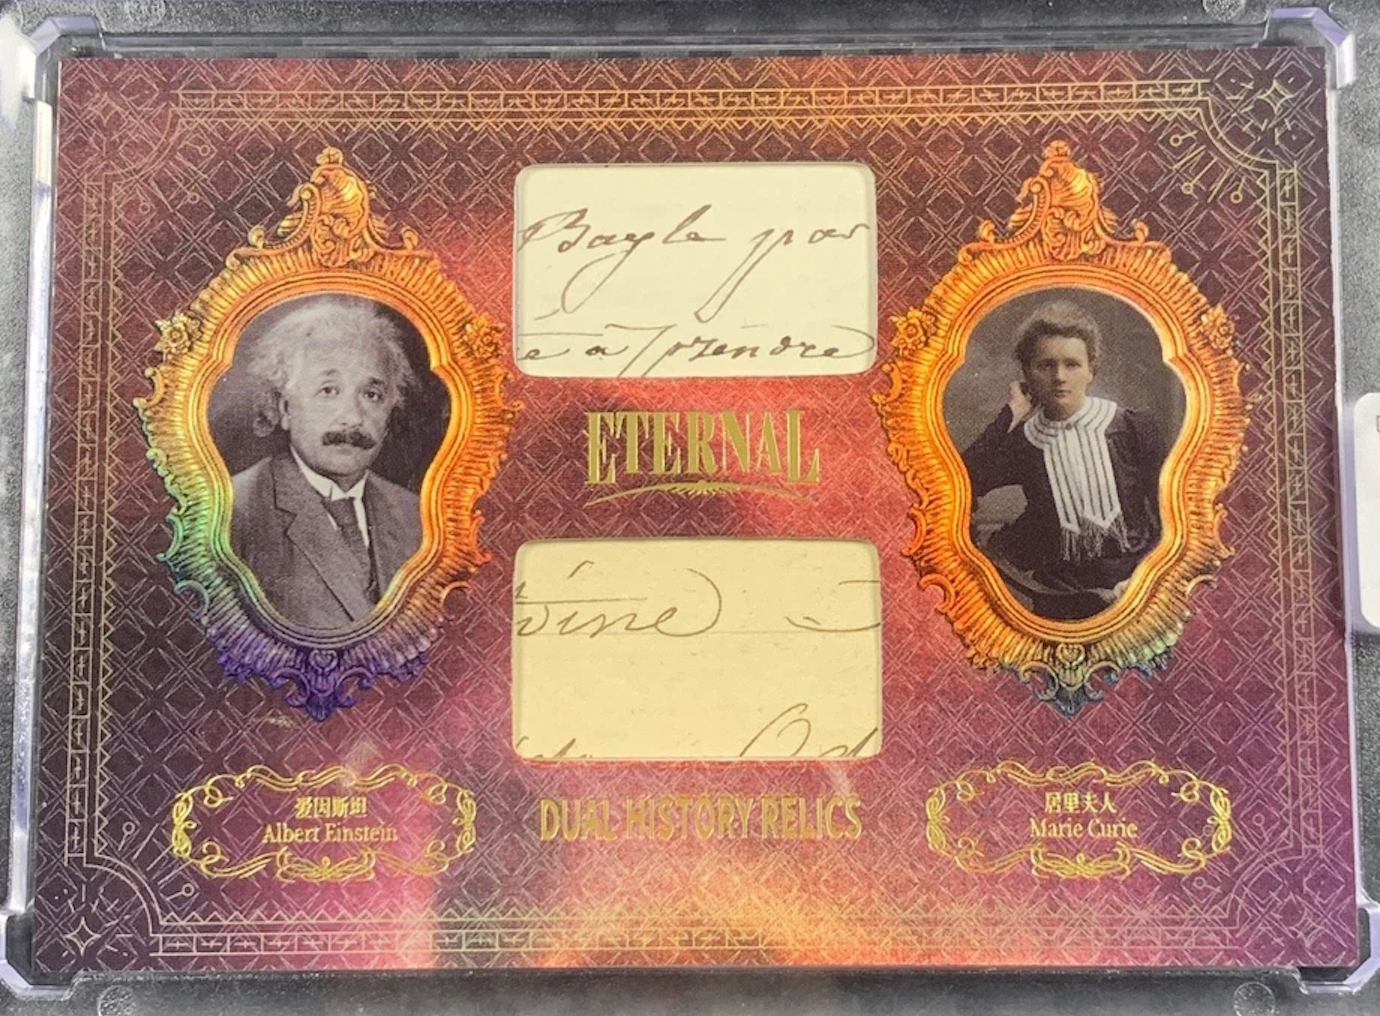 Bayle par
e a prendre
ETERNAL
vine
爱因斯坦
Albert Einstein
DUAL HISTORY RELICS
居里夫人
Marie Curie